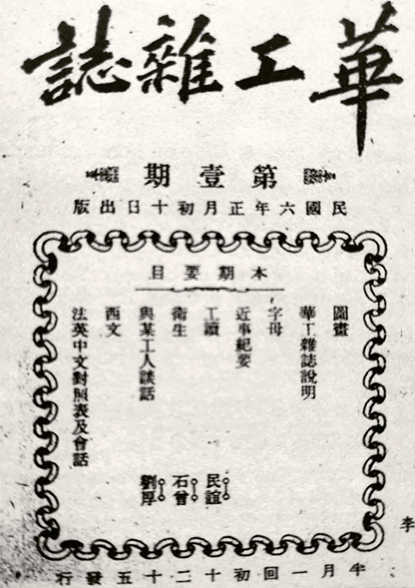 華工雜誌
第壹期
民國六年正月初十日出版
本期要目
圖畫
華工雜誌說明
字母
近事紀要
工讀 民誼
衛生 石曾
與某工人談話 劉厚
西文
法英中文對照表及會話
半月一回初十二十五發行
李